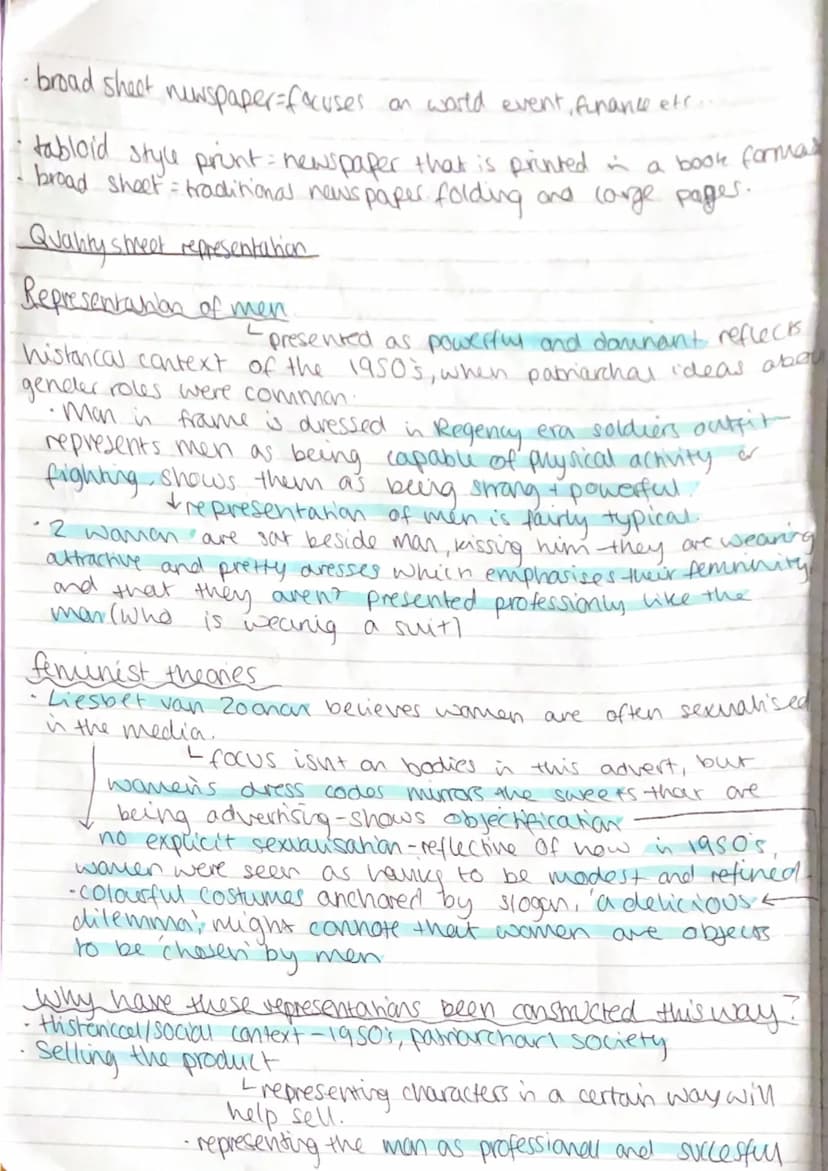 · broad sheet newspaper=focuses on world event, finance etc...
· tabloid style print = newspaper that is printed in a book format
· broad sheet = traditional newspaper folding and large pages.
Quality street representation
Representation of men
↳presented as powerful and dominant reflects
historical context of the 1950's, when patriarchal ideas about
gender roles were common.
· Man in frame is dressed in Regency era soldiers outfit-
represents men as being capable of physical activity or
fighting, shows them as being strong + powerful.
↓representation of men is fairly typical.
· 2 women are sat beside man, kissing him - they are wearing
attractive and pretty dresses which emphasises their femininity
and that they aren't presented professionly like the
man (who is wearing a suit)
feminist theories
· Liesbet van Zoonan believes women are often sexualised
in the media.
↳focus isnt on bodies in this advert, but
women's dress codes mirrors the sweets that are
being advertising - shows objectification
no explicit sexualisation - reflective of how in 1950's,
women were seen as having to be modest and refined.
· colourful costumes anchored by slogan, 'a delicious
dilemma', might connote that women are objects
to be 'chosen' by men
Why have these representations been constructed this way?
· Historical/social context - 1950's, patriarcharl society
· Selling the product
↳representing characters in a certain way will
help sell.
· representing the man as professional and succesful